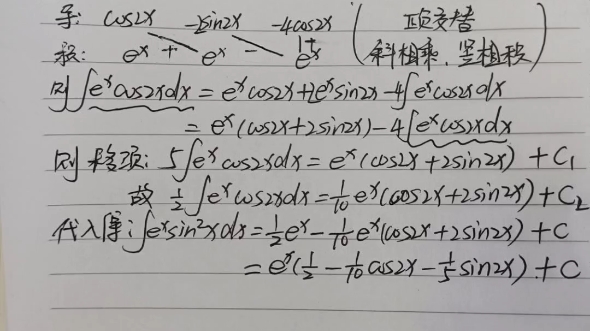 导: cos2x -2sin2x -4cos2x (正负交替
积: e^x + e^x - e^x 斜相乘、竖相积)
则∫e^x cos2xdx = e^x cos2x+2e^x sin2x-4∫e^x cos2xdx
= e^x(cos2x+2sin2x)-4∫e^x cos2xdx
则移项: 5∫e^x cos2xdx = e^x(cos2x+2sin2x)+C₁
故 1/2∫e^x cos2xdx = 1/10 e^x(cos2x+2sin2x)+C₂
代入得: ∫e^x sin²xdx = 1/2 e^x - 1/10 e^x(cos2x+2sin2x)+C
= e^x(1/2 - 1/10 cos2x - 1/5 sin2x)+C